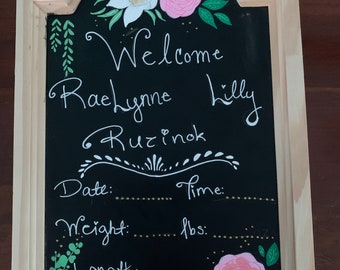 Welcome
RaeLynne Lilly
Ruzinok
Date: Time:
Weight: lbs:
Length